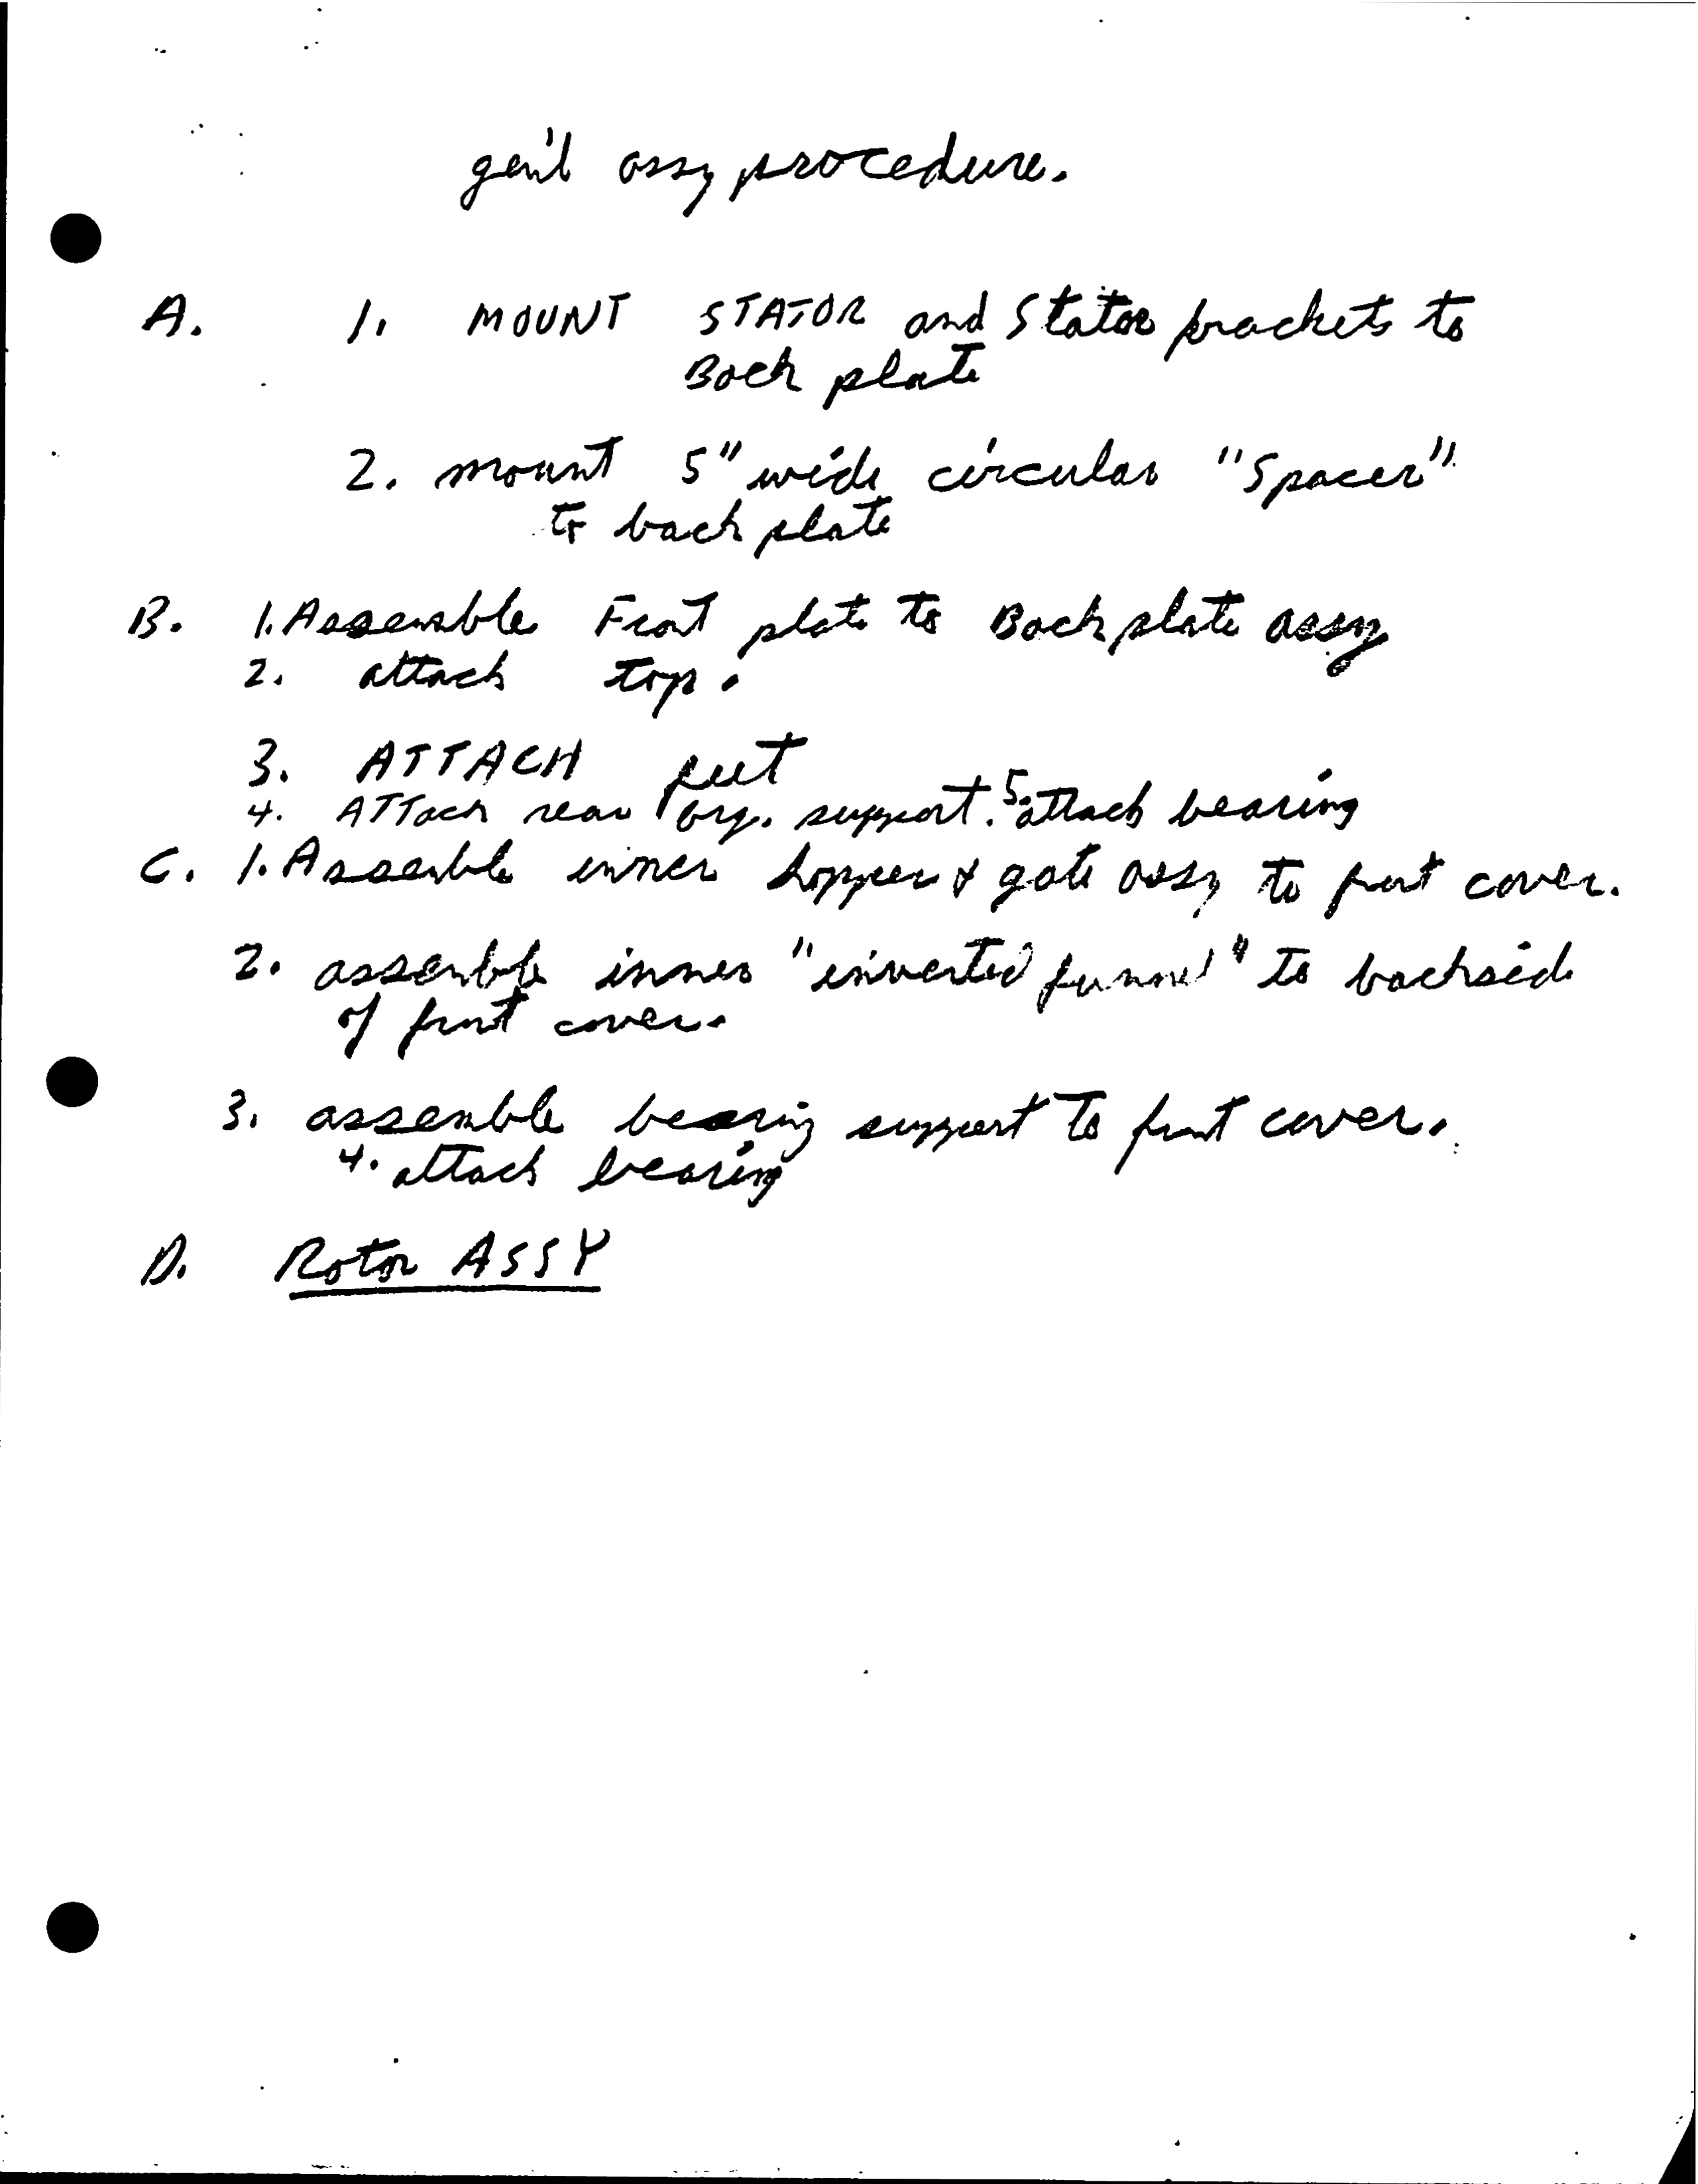 gen'l assy procedure.
A. 1. MOUNT STATOR and Stator brackets to
Back plate
2. mount 5" wide circular "Spacer"
to back plate
B. 1. Assemble Front plate to Back plate assy
2. attach top.
3. ATTACH feet
4. ATTach rear brg. support. 5. attach bearing
C. 1. Assemble inner hopper & gate assy to front cover.
2. assemble inner "inverted funnel" to backside
of front cover.
3. assemble bearing support to front cover.
4. attach bearing
D. Rotor ASSY